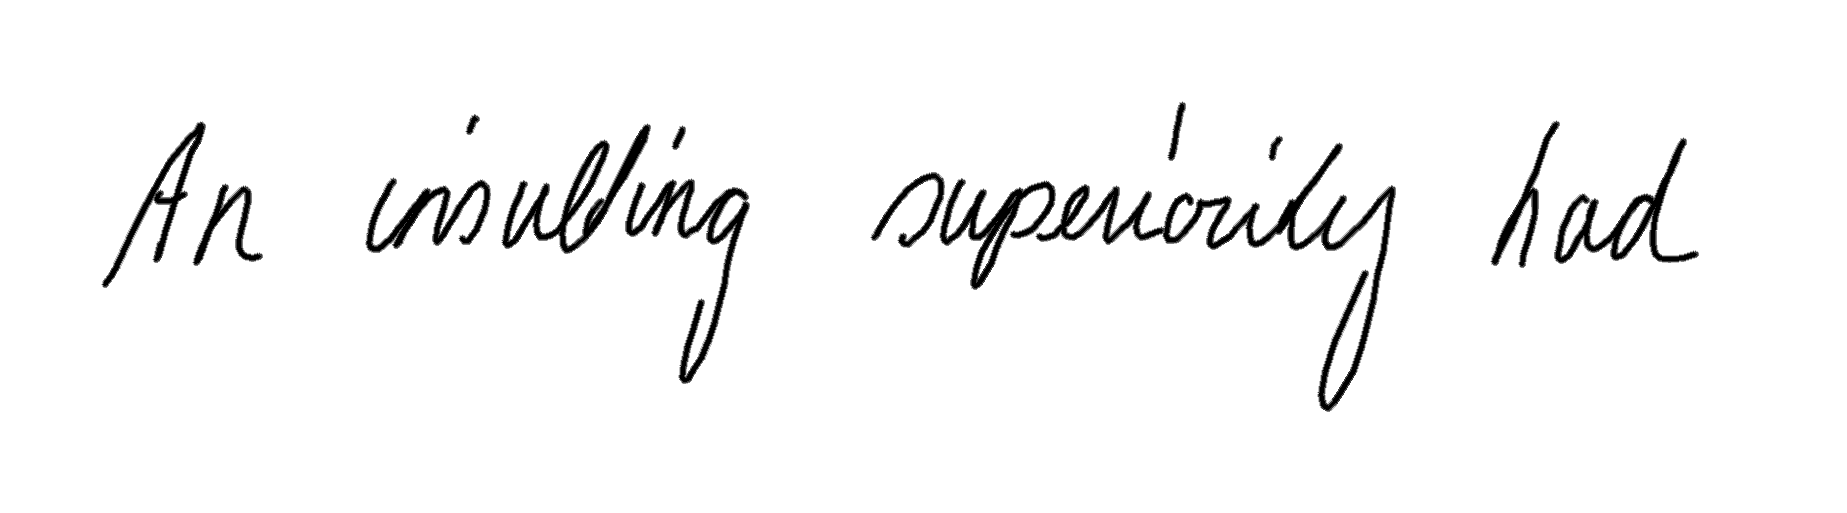 An insulting superiority had